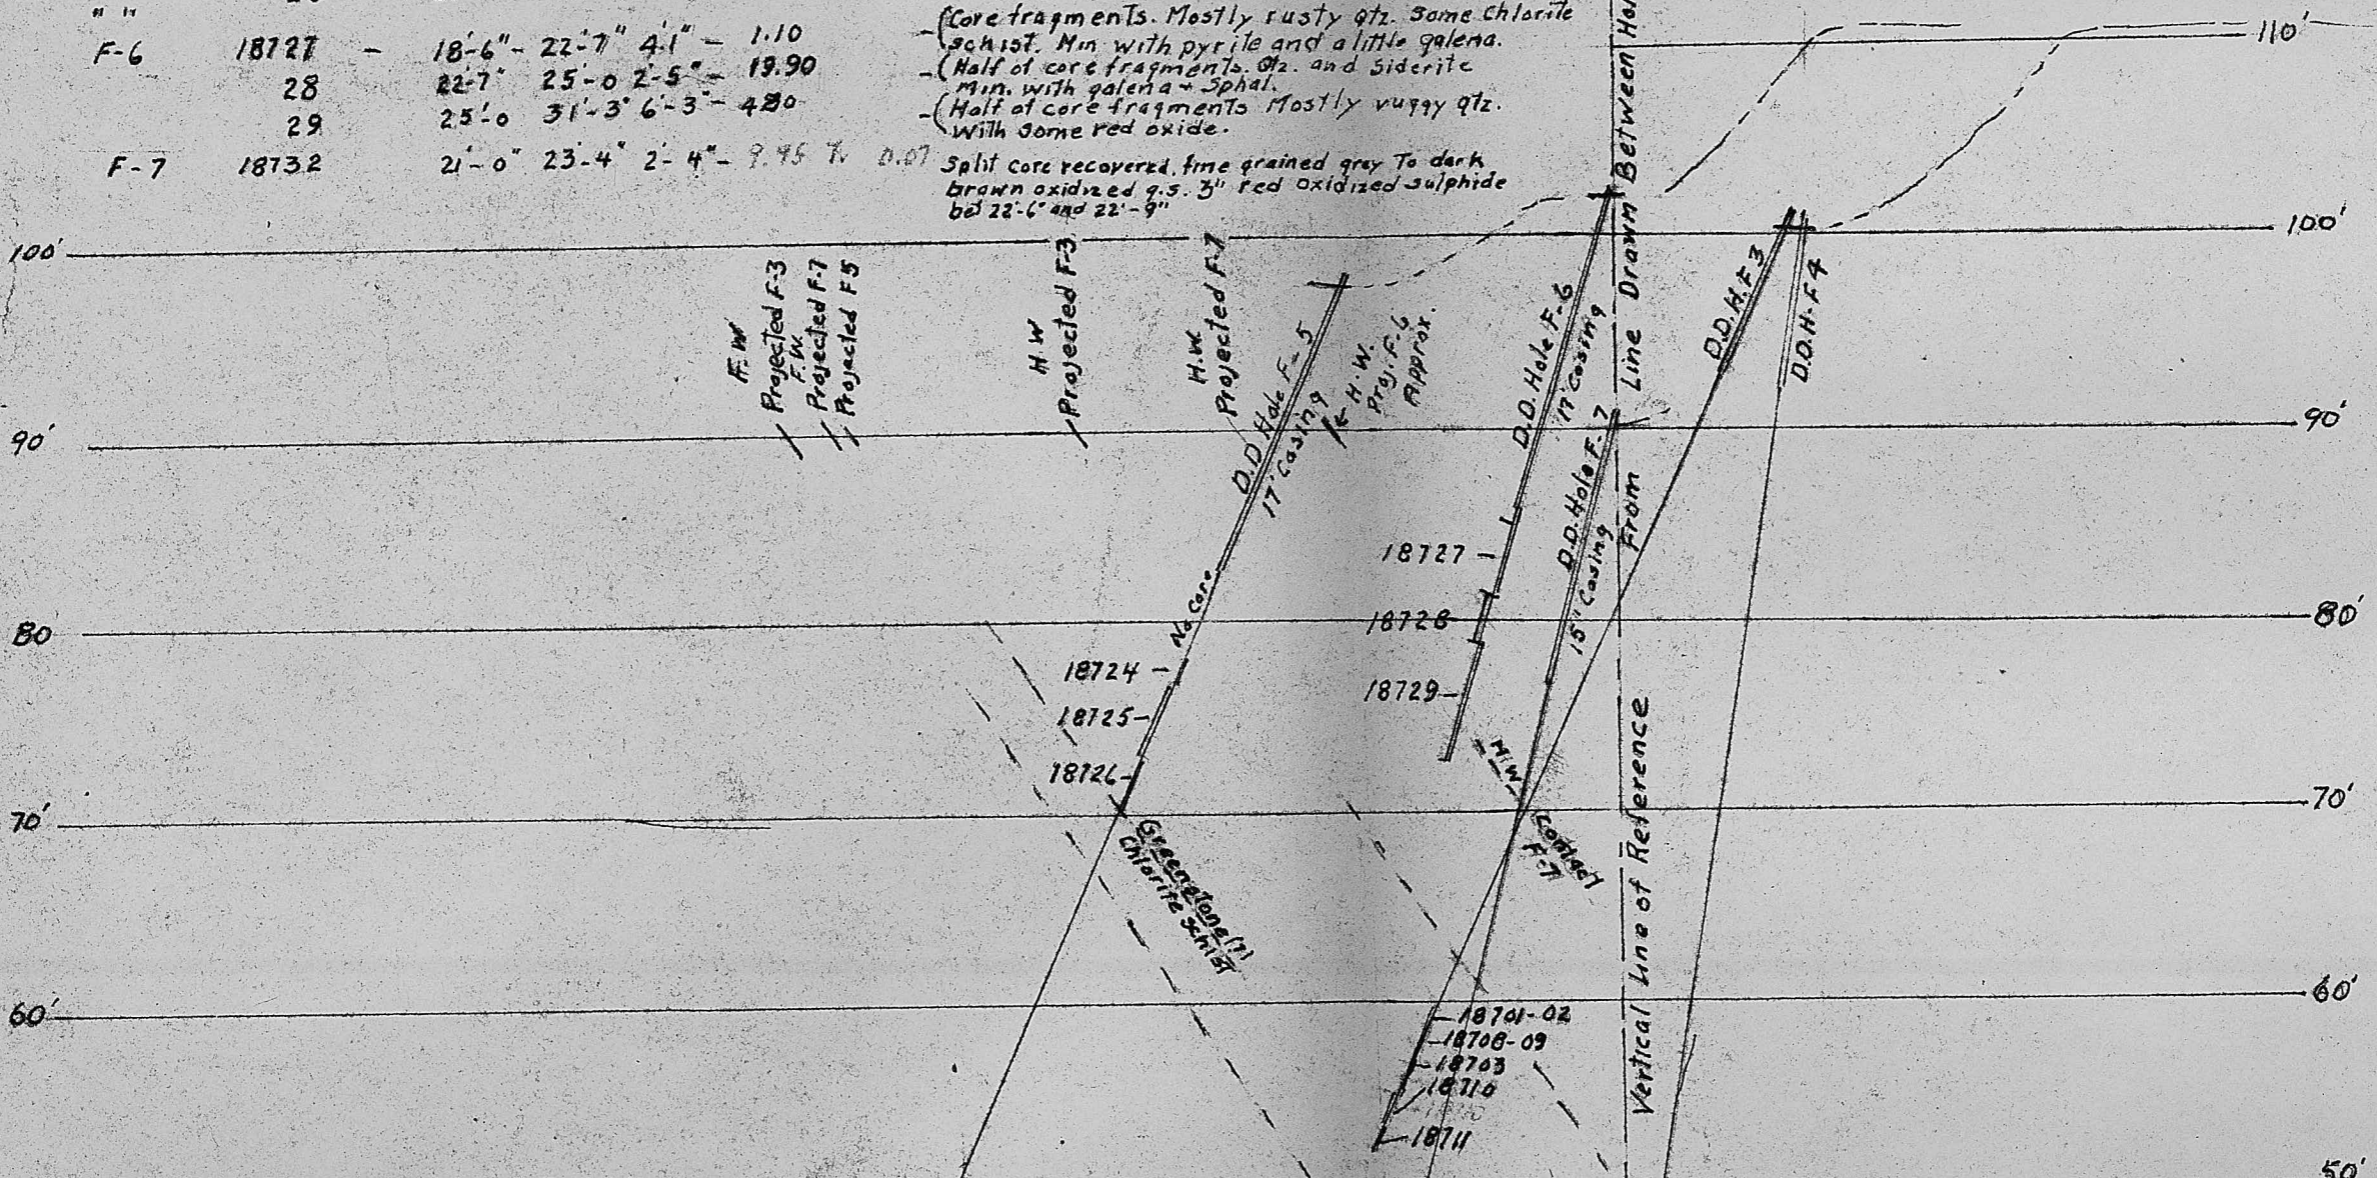 " "
F-6 18727 - 18'-6" - 22'-7" 4'1" - 1.10
(Core fragments. Mostly rusty qtz. Some Chlorite
schist. Min with pyrite and a little galena.
28 22'-7" 25'-0 2'-5" - 19.90
(Half of core fragments. Qtz. and Siderite
Min. with galena + Sphal.
29 25'-0 31'-3" 6'-3" -
(Half of core fragments Mostly vuggy qtz.
with some red oxide.
F-7 18732 21'-0" 23'-4" 2'-4" - 9.95 Tr 0.07
Split core recovered, fine grained gray To dark
brown oxidized q.s. 3" red oxidized sulphide
bet 22'-6" and 22'-9"
110'
100'
100'
F.W.
Projected F-3
F.W.
Projected F-7
Projected F5
H.W
Projected F-3
H.W.
Projected F-7
D.D Hole F-5
17' Casing
H.W.
Proj. F-6
Approx.
D.D. Hole F-6
17' Casing
D.D. Hole F-7
15' Casing
Vertical Line of Reference From Line Drawn Between
D.D.H. F-3
D.D.H-F4
90'
90'
No Core
18727
80
18728
80'
18724
18725
18726
18729
H.W.
Contact
F-7
70'
70'
Greenstone(?)
Chlorite Schist
60'
60'
18701-02
18708-09
18703
18710
18711
50'